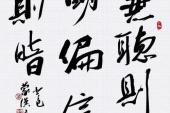 兼聽則
明偏信
則暗